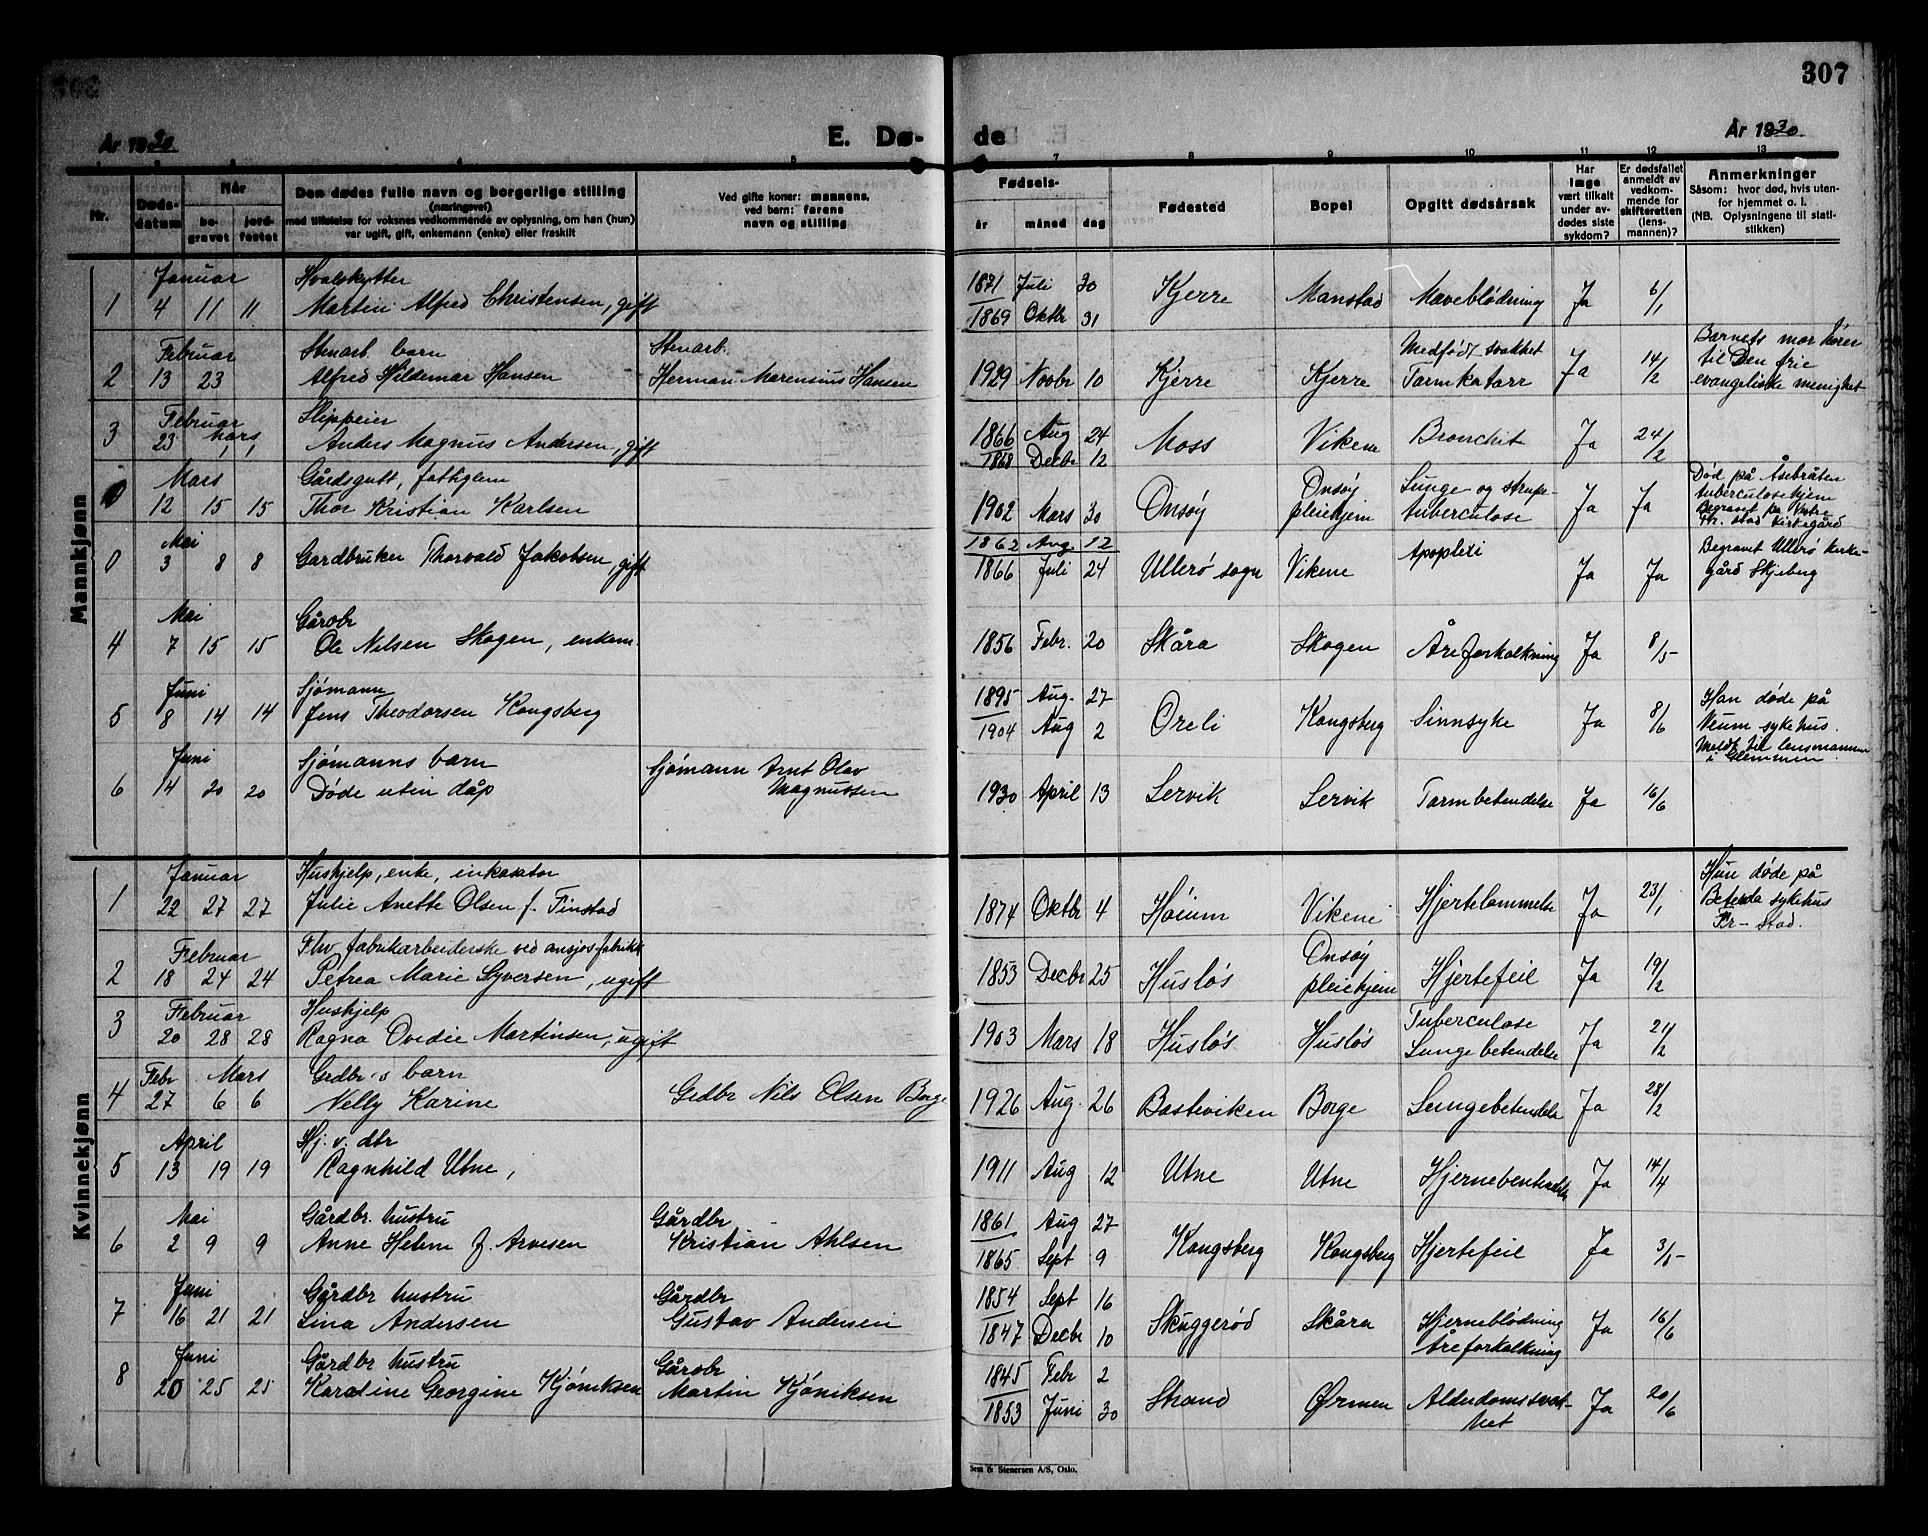 307
År 1930
E. Dø-
de
År 1930
Nr.
Døds-
datum
Når
be-
gravet
jord-
festet
Den dødes fulle navn og borgerlige stilling
(næringsvei)
med tilføielse for voksnes vedkommende av oplysning, om han (hun)
var ugift, gift, enkemann (enke) eller fraskilt
Ved gifte koner: mannens,
ved barn: farens
navn og stilling
Fødsels-
år måned dag
Fødested
Bopel
Opgitt dødsårsak
Har
læge
vært tilkalt
under av-
dødes siste
sykdom?
Er dødsfallet
anmeldt av
vedkom-
mende for
skifteretten
(lens-
mannen)?
Anmerkninger
Såsom: hvor død, hvis uten-
for hjemmet o. l.
(NB. Oplysningene til stati-
stikken)
7 8 9 10 11 12 13
Mannkjønn
Januar Hvalskytter 1871 Juli 30
1 4 11 11 Martin Alfred Christensen, gift 1869 Oktbr 31 Kjerre Manstad Maveblødning Ja 6/1
Februar Stenarb. barn Stenarb. Medfødt svakhet Barnets mor hører
2 13 23 Alfred Hildemar Hansen Herman Marensius Hansen 1929 Novbr 10 Kjerre Kjerre Tarmkatarr Ja 14/2 til Den frie
evangeliske menighet
Februar Mars Slippeier 1866 Aug 24
3 23 1, 1, Anders Magnus Andersen, gift 1868 Decbr 12 Moss Vikene Bronchit Ja 24/2
Mars Gårdsgutt, fattiglem Onsøy Lunge- og strupe- Død på Åsebråten
0 12 15 15 Thor Kristian Karlsen 1902 Mars 30 Onsøy pleiehjem tuberculose Ja Ja tuberculosehjem
Begravt på Vestre
Fr. stad Kirkegård
Mai 1862 Aug. 12
0 3 8 8 Gardbruker Thorvald Jakobsen, gift 1866 Juli 24 Ullerø sogn Vikene Apoplexi Ja Ja Begravet Ullerø kirke-
gård Skjeberg
Mai Gårdbr
4 7 15 15 Ole Nilsen Skogen, enkem. 1856 Febr. 20 Skåra Skogen Åreforkalkning Ja 8/5
Juni Sjømann 1895 Aug. 27 Han døde på
5 8 14 14 Jens Theodorsen Kongsberg 1904 Aug 2 Oreli Kongsberg Sinnsyke Ja 8/6 Veum sykehus.
Meldt til lensmannen
i Glemmen.
Juni Sjømanns barn Sjømann Arnt Olav
6 14 20 20 Døde uten dåp Magnussen 1930 April 13 Lervik Lervik Tarmbetendelse Ja 16/6
Kvinnekjønn
Januar Hushjelp, enke, inkasator Hun døde på
1 22 27 27 Julie Anette Olsen f. Tinstad 1874 Oktbr 4 Høium Vikene Hjertelammelse Ja 23/1 Betesda sykehus
Fr-stad.
Februar Fhv fabrikarbeiderske ved ansjosfabrikk Onsøy
2 18 24 24 Petrea Marie Syversen, ugift 1853 Decbr 25 Husløs pleiehjem Hjertefeil Ja 19/2
Februar Hushjelp Tuberculose
3 20 28 28 Ragna Ovidie Martinsen, ugift 1903 Mars 18 Husløs Husløs Lungebetendelse Ja 21/2
Febr Mars Grdbr's barn
4 27 6 6 Nelly Karine Grdbr Nils Olsen Borge 1926 Aug. 26 Basteviken Borge Lungebetendelse Ja 28/2
April Hj. v. dtr
5 13 19 19 Ragnhild Utne, 1911 Aug 12 Utne Utne Hjernebentendelse Ja 14/4
Mai Gårdbr. hustru Gårdbr 1861 Aug 27
6 2 9 9 Anne Helene f. Arvesen Kristian Ahlsen 1865 Sept 9 Kongsberg Kongsberg Hjertefeil Ja 3/5
Juni Gårdbr hustru Gårdbr 1854 Sept 16
7 16 21 21 Lina Andersen Gustav Andersen 1847 Decbr 10 Skuggerød Skåra Hjerneblødning Ja 16/6
Åreforkalkning
Juni Gårdbr hustru Gårdbr 1845 Febr 2
8 20 25 25 Karoline Georgine Kjøniksen Martin Kjøniksen 1853 Juni 30 Strand Ørmen Alderdomssvak- Ja 20/6
het
Sem & Stenersen A/S, Oslo.